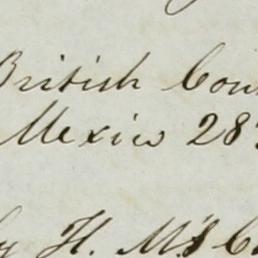 British Con
Mexico 28
y H. M's C